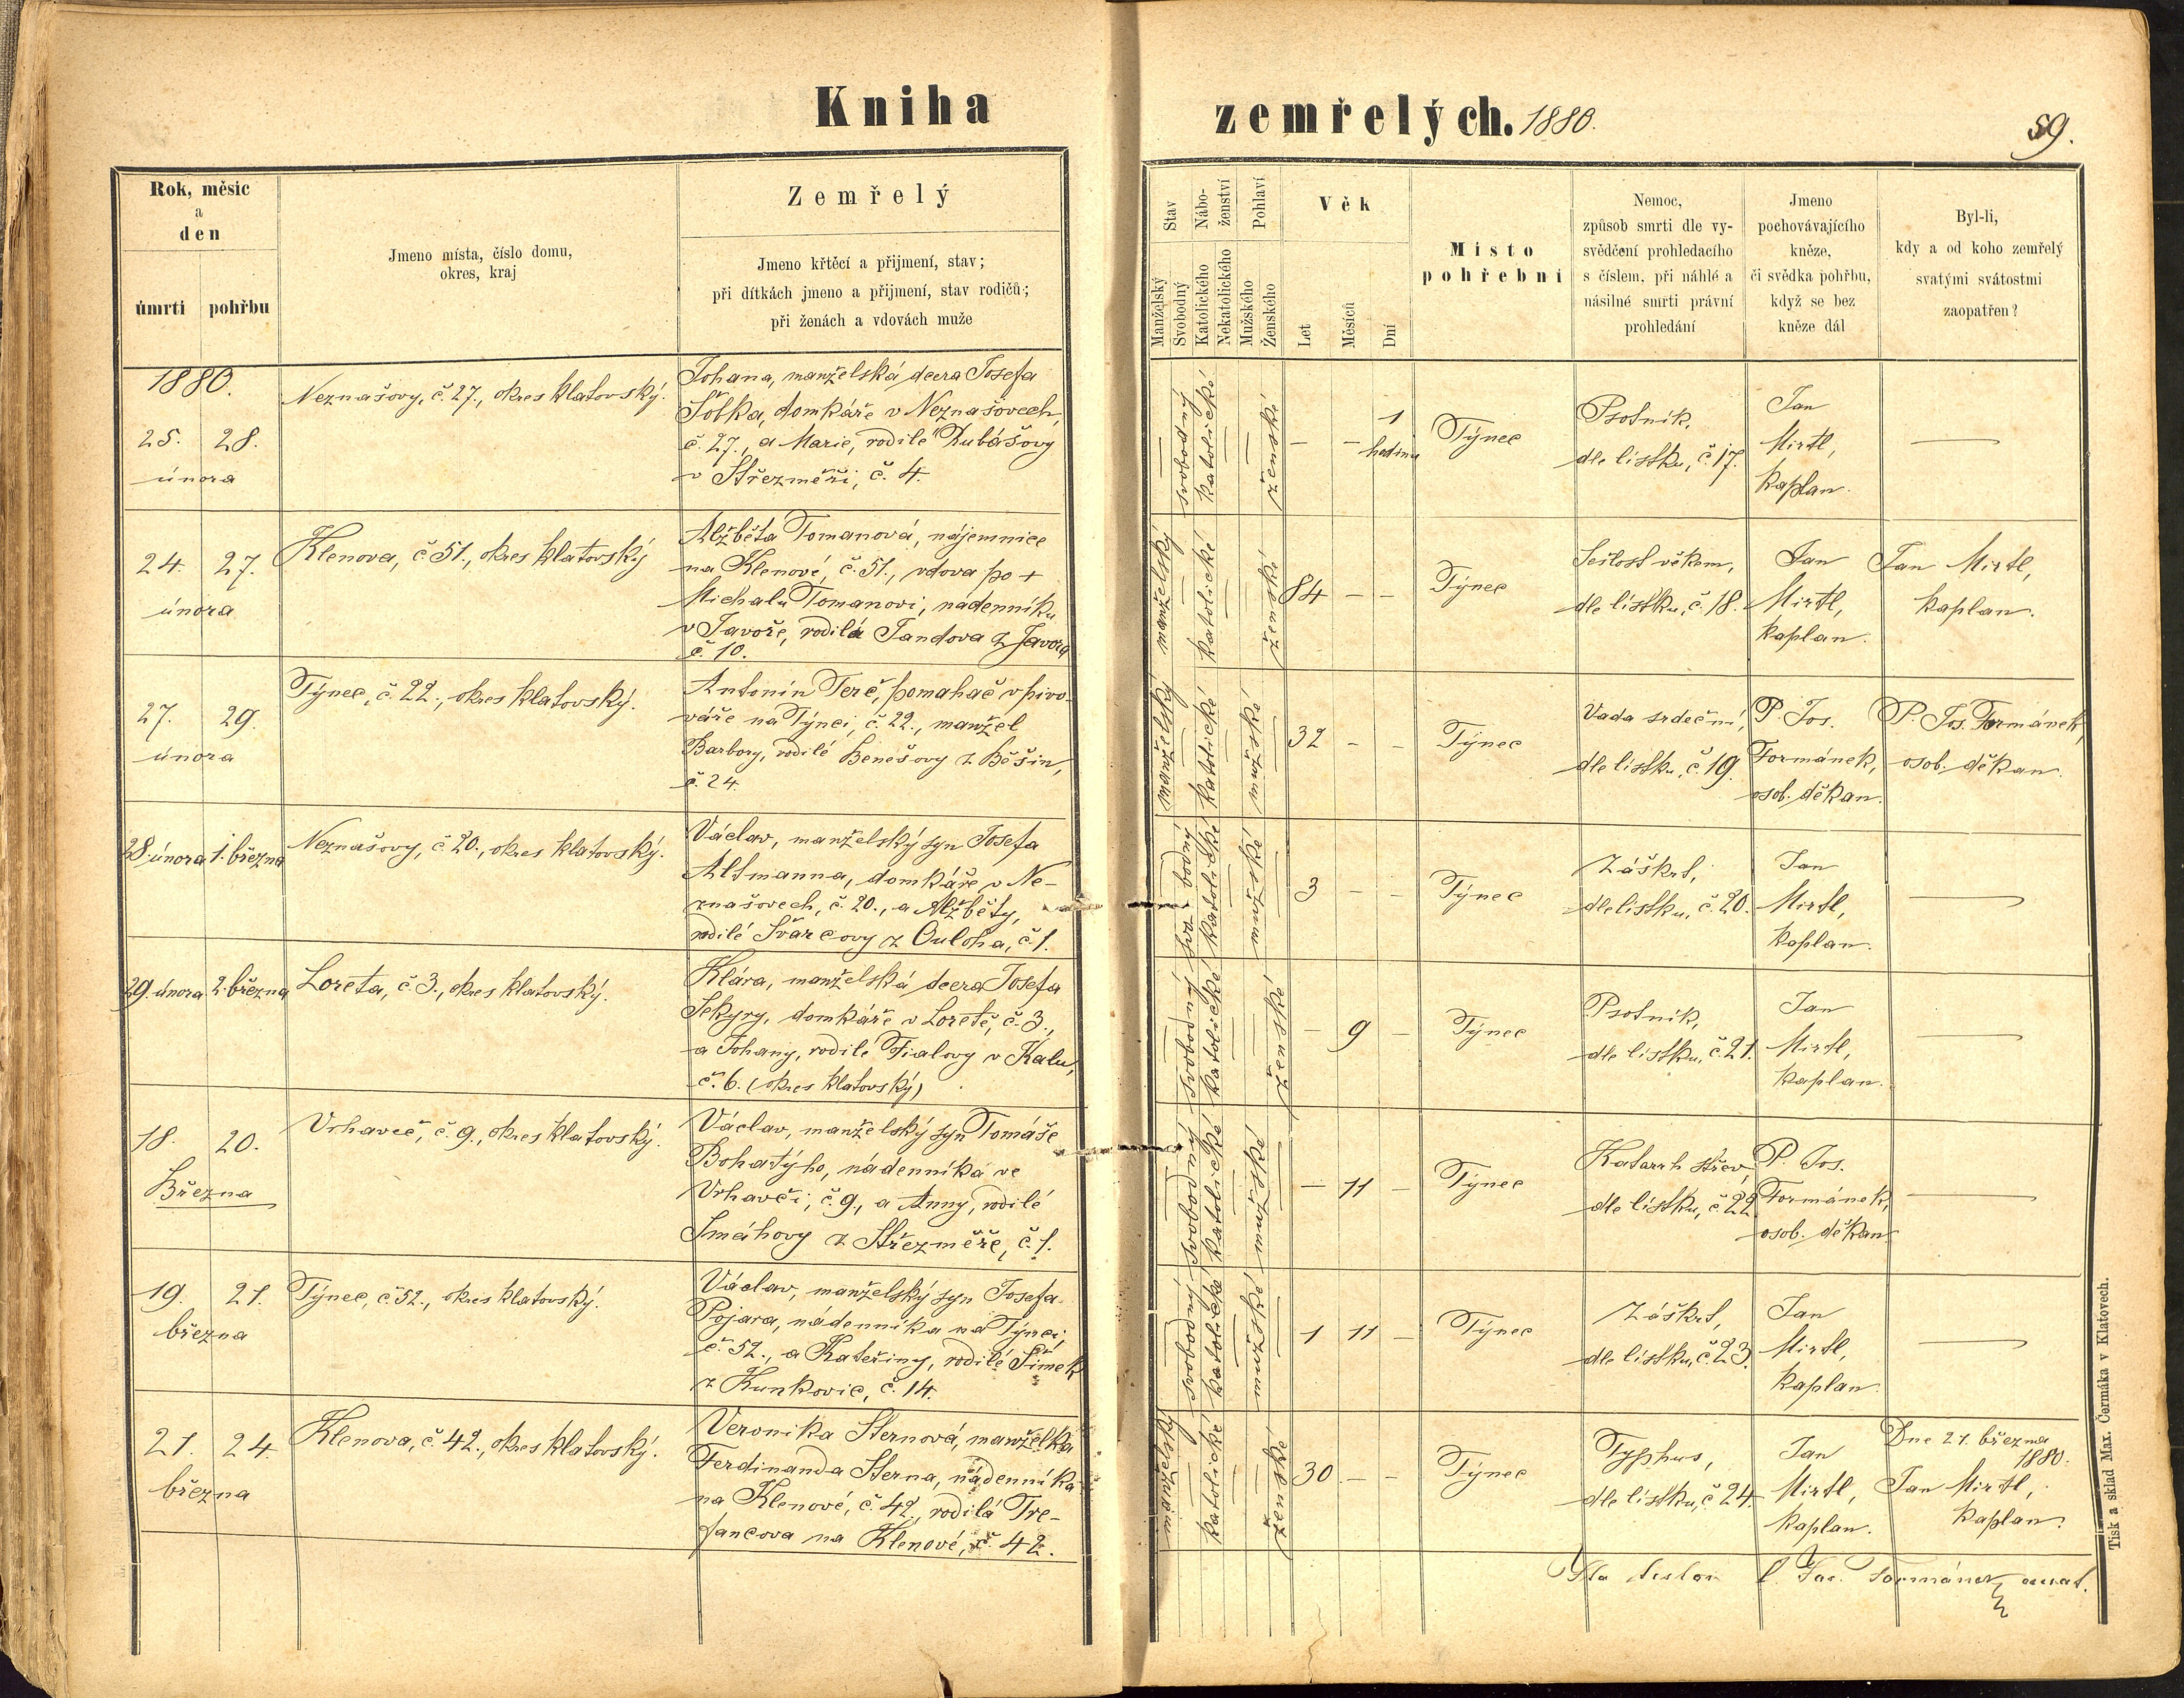 Kniha zemřelých. 1880.
59.
Rok, měsíc
a
den
úmrtí
pohřbu
Jmeno místa, číslo domu,
okres, kraj
Zemřelý
Jmeno křtěcí a přijmení, stav;
při dítkách jmeno a přijmení, stav rodičů;
při ženách a vdovách muže
Stav
Manželský
Svobodný
Nábo-
ženství
Katolického
Nekatolického
Pohlaví
Mužského
Ženského
Věk
Let
Měsíců
Dní
Místo
pohřební
Nemoc,
způsob smrti dle vy-
svědčení prohledacího
s číslem, při náhlé a
násilné smrti právní
prohledání
Jmeno
pochovávajícího
kněze,
či svědka pohřbu,
když se bez
kněze dál
Byl-li,
kdy a od koho zemřelý
svatými svátostmi
zaopatřen?
1880.
25. 28.
února
Neznašovy, č. 27., okres klatovský.
Johana, manželská dcera Josefa
domkáře v Neznašovech,
č. 27., a Marie, rodilé Kubášovy
v Střezměři, č. 4.
— svobodný katolické — — ženské
— — 1
hodinu
Týnec
Psotník,
dle lístku, č. 17.
Jan
Mirtl,
kaplan.
—
24. 27.
února
Klenova, č. 51., okres klatovský
Alžběta Tomanová, nájemnice
na Klenové, č. 51., vdova po +
Michalu Tomanovi, nádenníku
v Javoře, rodilá Jandova z Javora
č. 10.
manželský — katolické — — ženské
84 — —
Týnec
Sešlost věkem,
dle lístku, č. 18.
Jan
Mirtl,
kaplan.
Jan Mirtl,
kaplan.
27. 29.
února
Týnec, č. 22., okres klatovský.
Antonín Terč, pomahač v pivo-
váře na Týnci, č. 22., manžel
Barbory, rodilé Benešovy z Běšin,
č. 24.
manželský — katolické — mužské —
32 — —
Týnec
Vada srdeční,
dle lístku, č. 19.
P. Jos.
Formánek,
osob. děkan.
P. Jos. Formánek,
osob. děkan.
28. února 1. března
Neznašovy, č. 20., okres klatovský.
Václav, manželský syn Josefa
Altmanna, domkáře v Ne-
znašovech, č. 20., a Alžběty,
rodilé Švarcovy z Ouloha, č. 1.
— svobodný katolické — mužské —
3 — —
Týnec
Záškrt,
dle lístku, č. 20.
Jan
Mirtl,
kaplan.
—
29. února 2. března
Loreta, č. 3., okres klatovský.
Klára, manželská dcera Josefa
Sekyry, domkáře v Loretě, č. 3.,
a Johany, rodilé Fialovy v Kalu,
č. 6. (okres klatovský)
— svobodný katolické — — ženské
— 9 —
Týnec
Psotník,
dle lístku, č. 21.
Jan
Mirtl,
kaplan.
—
18. 20.
Března
Vrhaveč, č. 9., okres klatovský.
Václav, manželský syn Tomáše
Bohatýho, nádenníka ve
Vrhavči, č. 9., a Anny, rodilé
Smáhovy z Střezměře, č. 1.
— svobodný katolické — mužské —
— 11 —
Týnec
Katarrh střev,
dle lístku, č. 22.
P. Jos.
Formánek,
osob. děkan
—
19. 21.
března
Týnec, č. 52., okres klatovský.
Václav, manželský syn Josefa
Pojara, nádenníka na Týnci,
č. 52., a Kateřiny, rodilé Šimek
z Kunkovic, č. 14.
— svobodný katolické — mužské —
1 11 —
Týnec
Záškrt,
dle lístku, č. 23.
Jan
Mirtl,
kaplan.
—
21. 24.
března
Klenova, č. 42., okres klatovský.
Veronika Sternová, manželka
Ferdinanda Sterna, nádenníka
na Klenové, č. 42., rodilá Tre-
fancova na Klenové, č. 42.
katolické — — ženské
30. — —
Týnec
Typhus,
dle lístku, č. 24
Jan
Mirtl,
kaplan.
Dne 21. března
1880.
Jan Mirtl,
kaplan.
Formánek
Tisk a sklad Max. Čermáka v Klatovech.